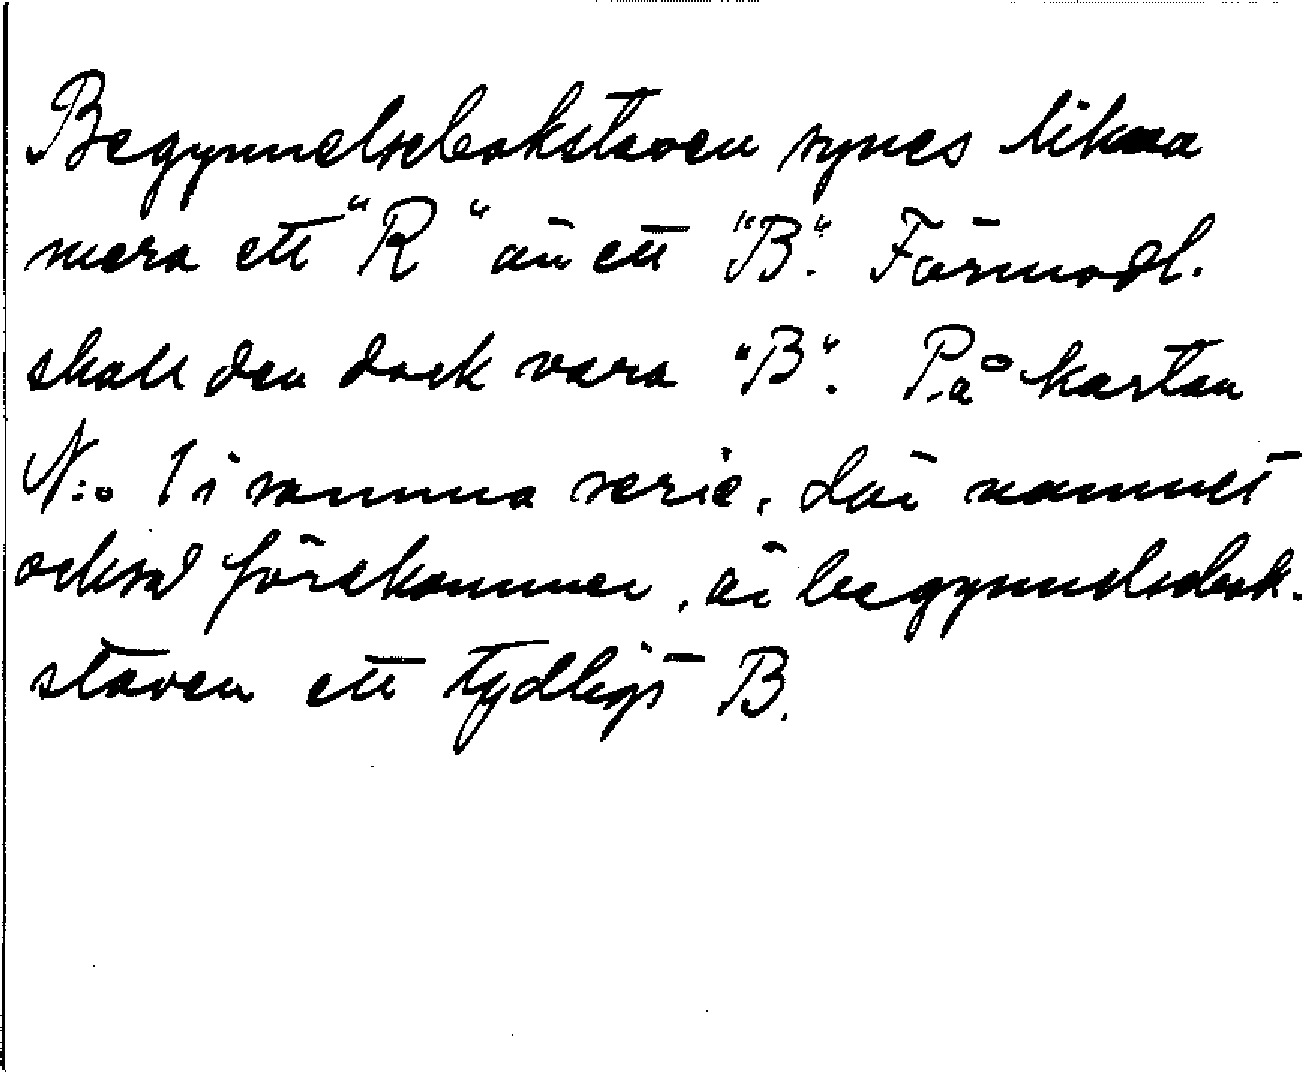 Begynnelsebokstaven synes likna
mera ett "R" än ett "B". Förmodl.
skall den dock vara "B". På kartan
N:o 1 i samma serie, där namnet
också förekommer, är begynnelsebok-
staven ett tydligt B.